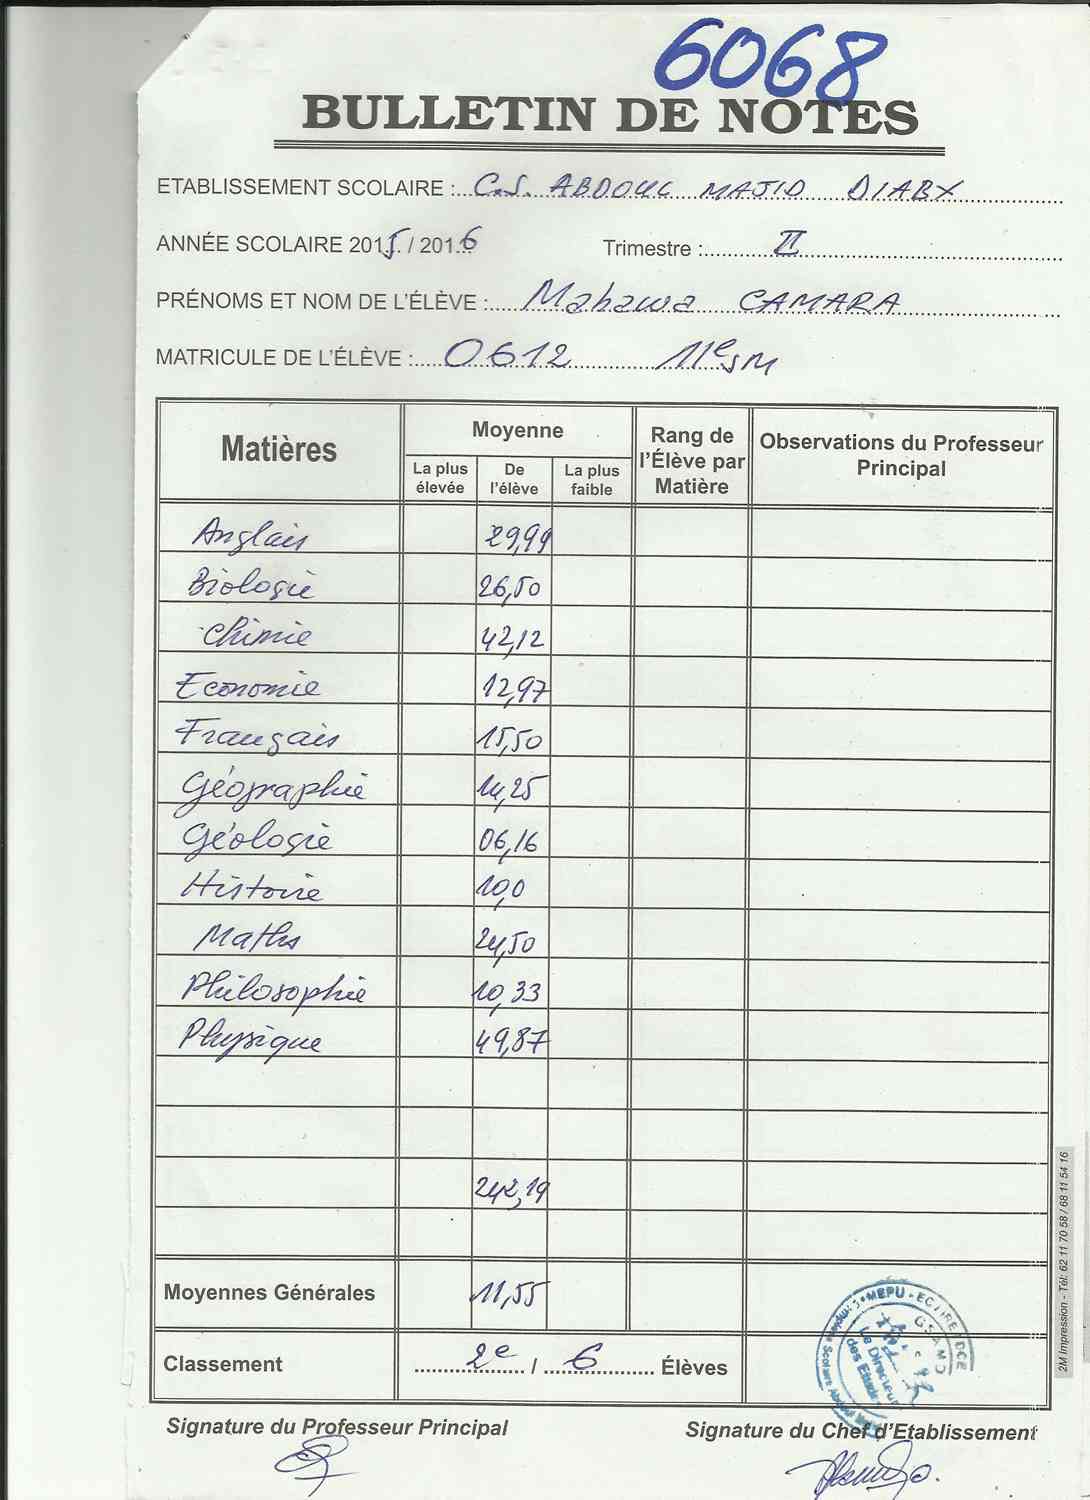 6068
BULLETIN DE NOTES
ETABLISSEMENT SCOLAIRE : C.S. ABDOUL MAJID DIABY
ANNÉE SCOLAIRE 2015 / 2016 Trimestre : II
PRÉNOMS ET NOM DE L'ÉLÈVE : Mahawa CAMARA
MATRICULE DE L'ÉLÈVE : 0612 11e SM
Matières Moyenne Rang de l'Élève par Matière Observations du Professeur Principal
La plus élevée De l'élève La plus faible
Anglais 29,99
Biologie 26,50
Chimie 42,12
Economie 12,97
Français 15,50
Géographie 14,25
Géologie 06,16
Histoire 10,0
Maths 24,50
Philosophie 10,33
Physique 49,87
242,19
Moyennes Générales 11,55
Classement 2e / 6 Élèves
MEPU
Le Directeur
des Etudes
Signature du Professeur Principal Signature du Chef d'Etablissement
2M Impression - Tél: 62 11 70 58 / 68 11 54 16